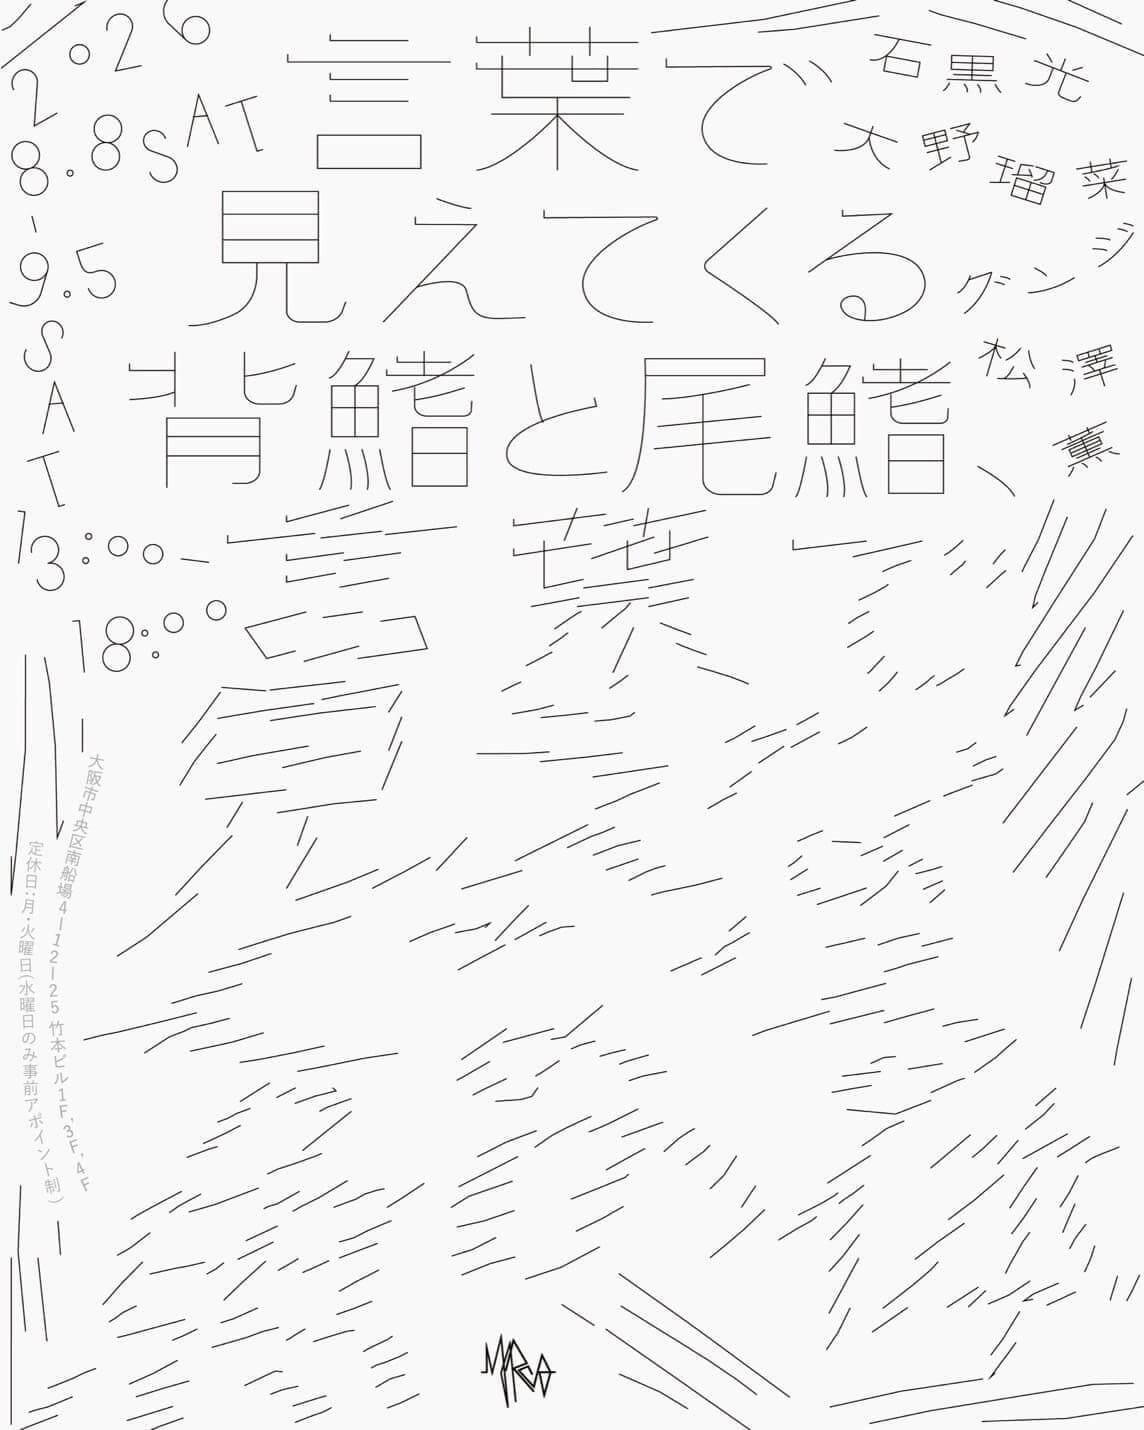 2026
8.8 SAT
-
9.5
SAT
13:00-
18:00
言葉で
見えてくる
背鰭と尾鰭、
言葉で
石黒光
大野瑠菜
グンジ
松澤
薫
大阪市中央区南船場4-12-25 竹本ビル1F, 3F, 4F
定休日:月・火曜日(水曜日のみ事前アポイント制)